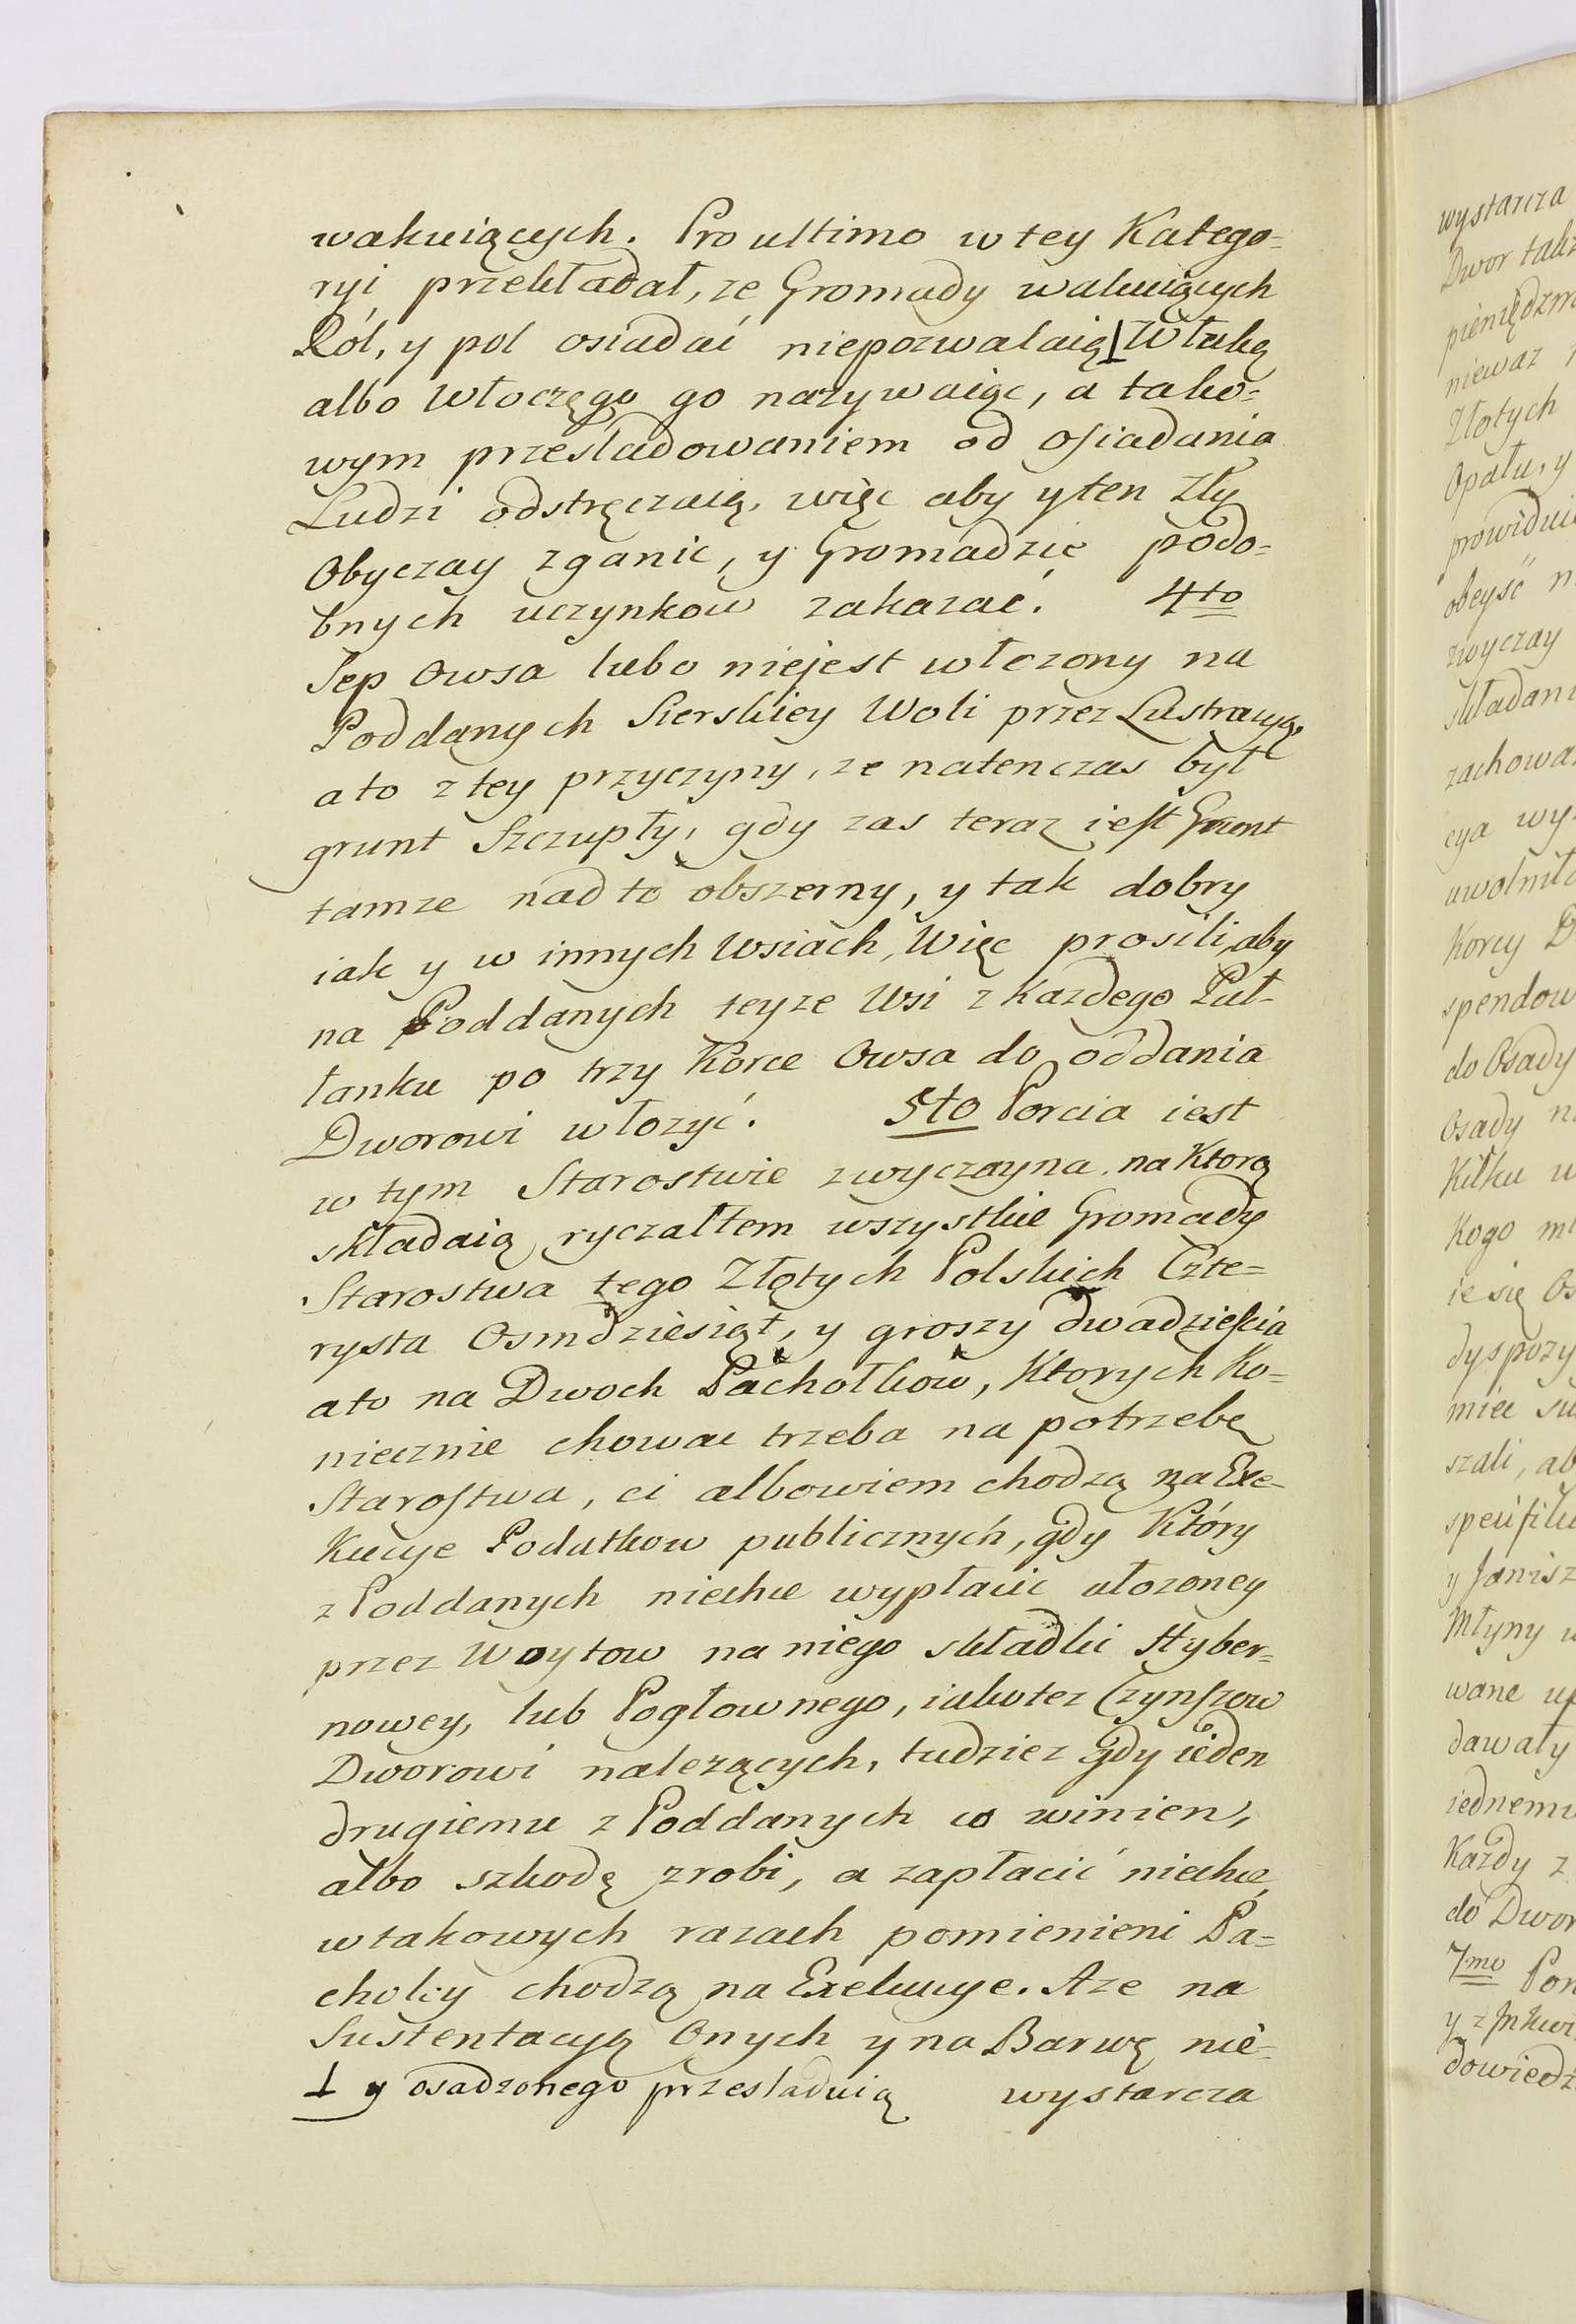 wakuiących. Pro ultimo w tey Katego=
ryi przekładał, ze Gromady wakuiących
Ról, y pol osiadać niepozwalaią ⊥ Włukę
albo włoczęgo go nazywaiąc, a tako=
wym prześladowaniem od osiadania
Ludzi odstręczaią, więc aby y ten zły
Obyczay zganic, y Gromadzie podo=
bnych uczynkow zakazać. 4to
Sep Owsa lubo niejest włozony na
Poddanych Sierskiey Woli przez Lustracyą,
a to z tey przyczyny, ze natenczas był
grunt Szczupły, gdy zas teraz iest Grunt
tamze nad to obszerny, y tak dobry
iak y w innych Wsiach, Więc prosili, aby
na Poddanych teyze Wsi z Kazdego Puł-
łanku po trzy Korce Owsa do oddania
Dworowi włozyć. 5to Porcia iest
w tym Starostwie zwyczayna, na Ktorą
składaią ryczałtem wszystkie Gromady
Starostwa tego Złotych Polskich Czte=
rysta Osmdziesiąt, y groszy dwadzieścia
a to na Dwoch Pachołkow, Ktorych Ko=
niecznie chowac trzeba na potrzebę
Starostwa, ci albowiem chodzą na Exe-
Kucye Podatkow publicznych, gdy Który
z Poddanych niechce wypłacic ułozoney
przez Woytow na niego składki Hyber=
nowey, lub Pogłownego, iako tez Czynszow
Dworowi nalezących, tudziez gdy ieden
drugiemu z Poddanych co winien,
albo szkodę zrobi, a zapłacić niechce,
w takowych razach pomienieni Pa=
cholcy chodzą na Exekucye. Aze na
Sustentacyą Onych y na Barwę nie-
⊥ y osadzonego przesladuią wystarcza
wystarcza
Dwor
niewaz
Złotych
Opału, y
obeyść
zwyczay
cya wy-
Korcy
do Osady
Osady
Kilku
Kogo
ie się
szali, ab
Młyny
wane
dawały
Kazdy z
do Dwor
7mo